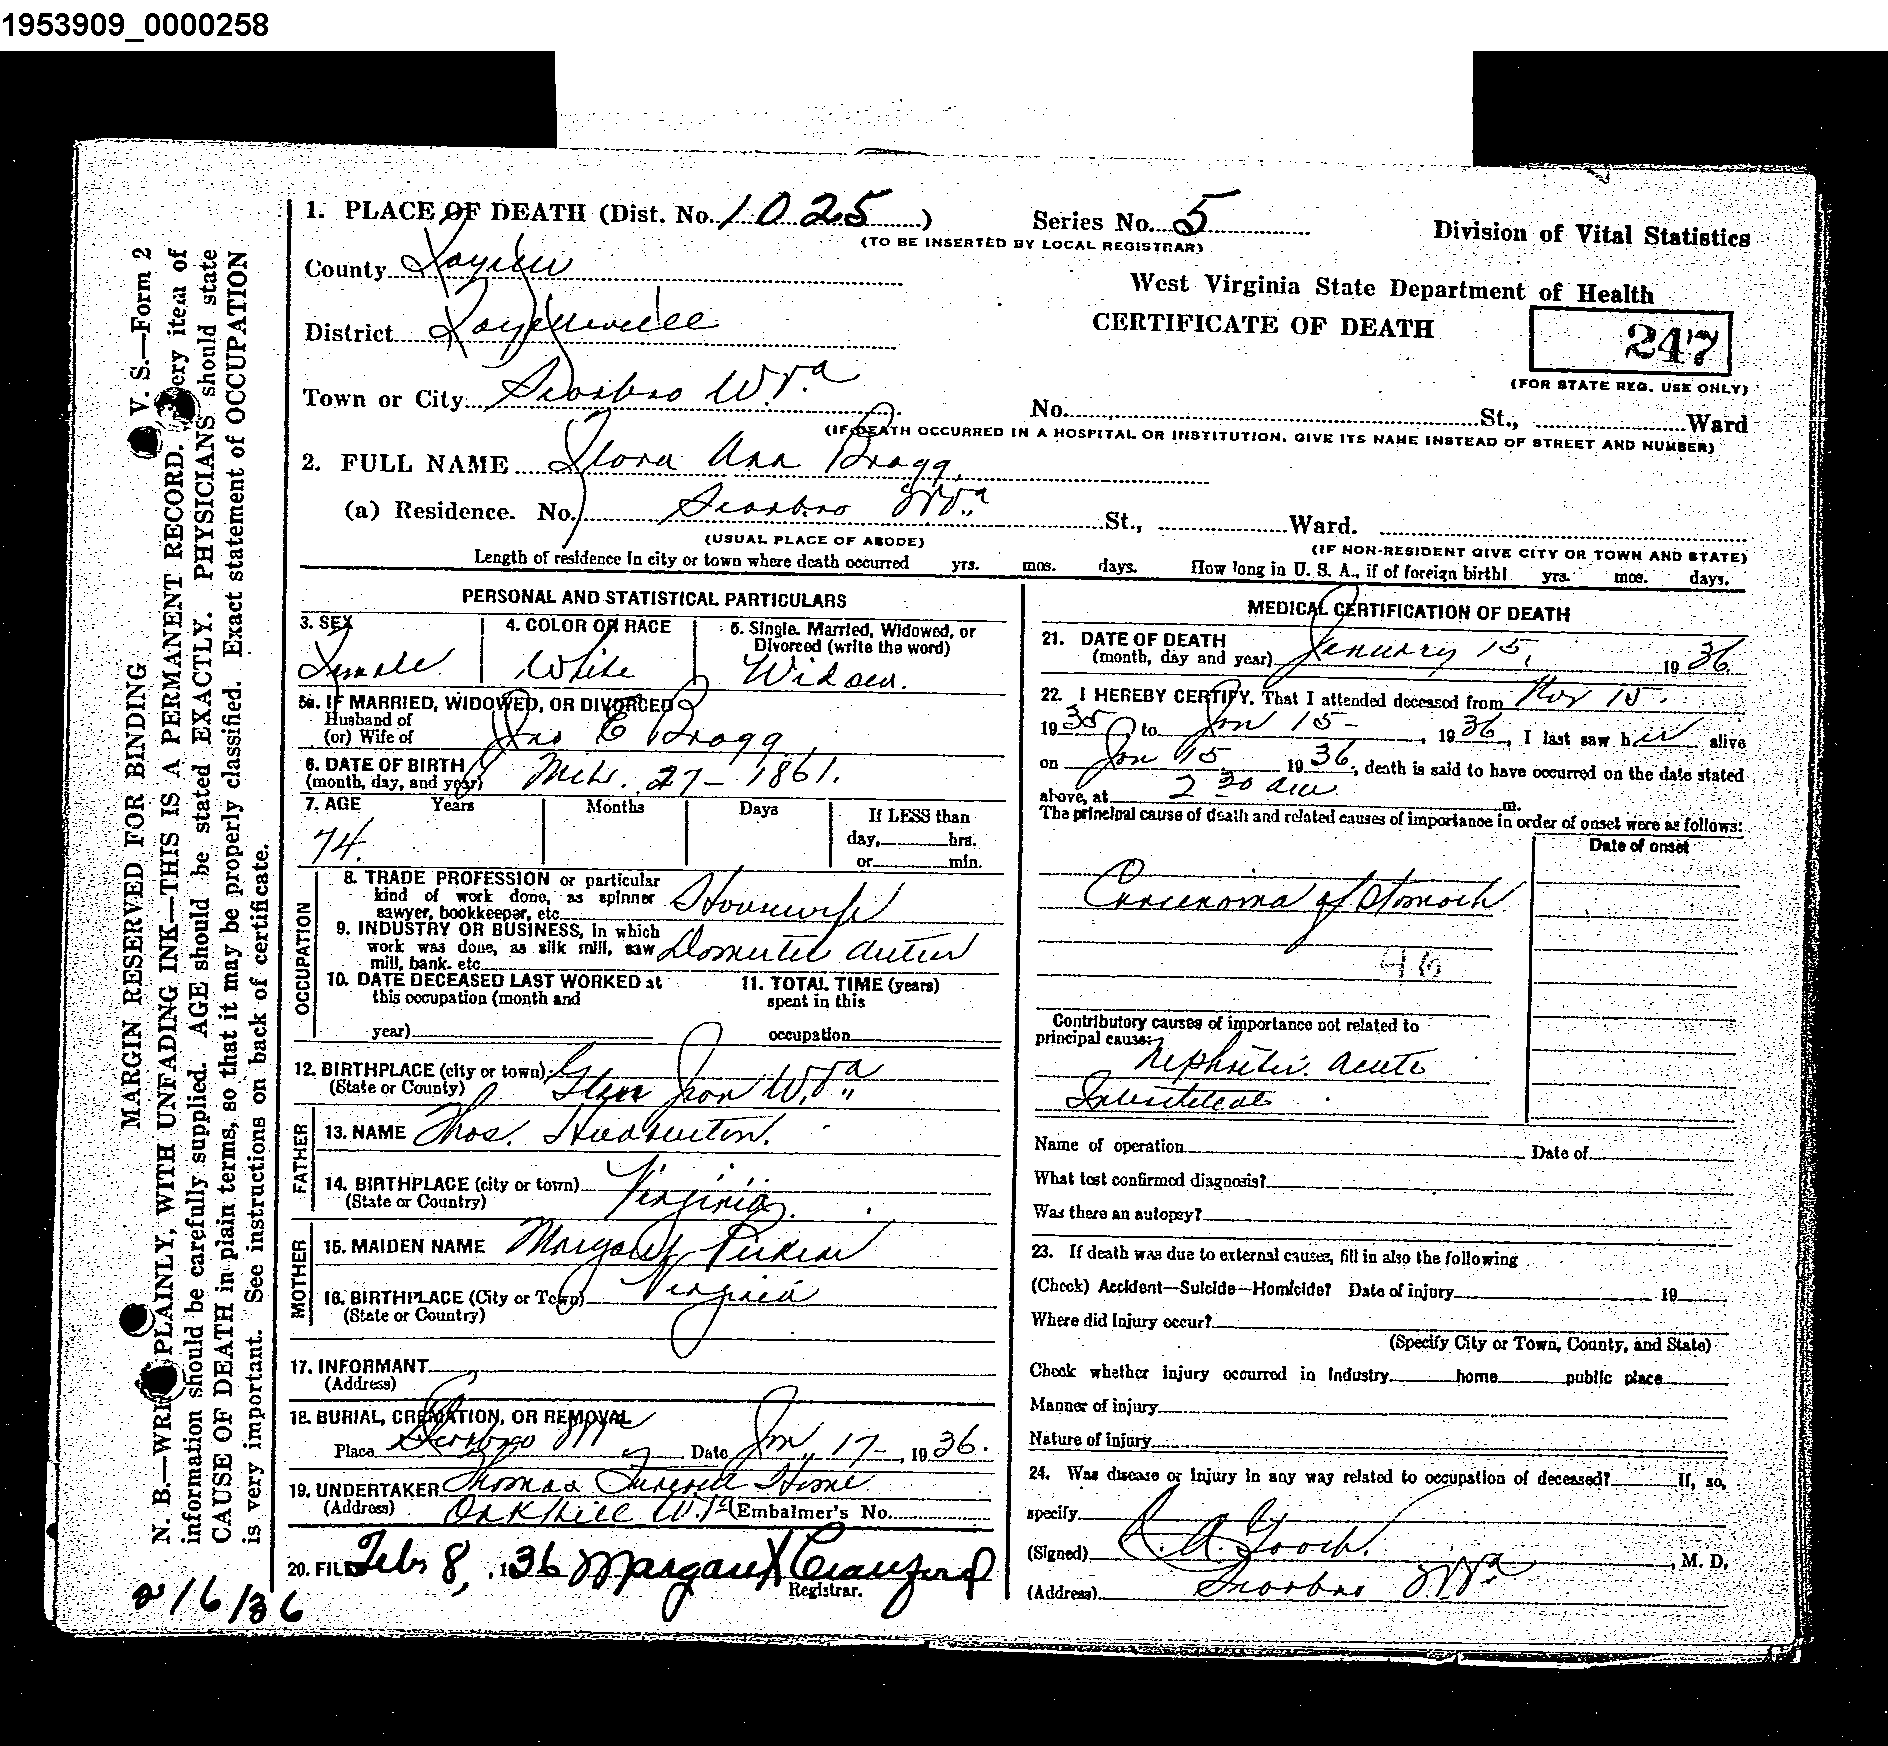 1953909_0000258
MARGIN RESERVED FOR BINDING V. S.—Form 2
N. B.—WRITE PLAINLY, WITH UNFADING INK—THIS IS A PERMANENT RECORD. Every item of
information should be carefully supplied. AGE should be stated EXACTLY. PHYSICIANS should state
CAUSE OF DEATH in plain terms, so that it may be properly classified. Exact statement of OCCUPATION
is very important. See instructions on back of certificate.
1. PLACE OF DEATH (Dist. No. 1025) Series No. 5
(TO BE INSERTED BY LOCAL REGISTRAR)
Division of Vital Statistics
County Fayette
West Virginia State Department of Health
CERTIFICATE OF DEATH
247
(FOR STATE REG. USE ONLY)
District Fayetteville
Town or City Scarbro W.Va
No. St., Ward
(IF DEATH OCCURRED IN A HOSPITAL OR INSTITUTION, GIVE ITS NAME INSTEAD OF STREET AND NUMBER)
2. FULL NAME Flora Ann Bragg
(a) Residence. No. Scarbro W.Va St., Ward.
(USUAL PLACE OF ABODE) (IF NON-RESIDENT GIVE CITY OR TOWN AND STATE)
Length of residence in city or town where death occurred yrs. mos. days. How long in U. S. A., if of foreign birth? yrs. mos. days.
PERSONAL AND STATISTICAL PARTICULARS
3. SEX 4. COLOR OR RACE 5. Single, Married, Widowed, or
Divorced (write the word)
Female White Widow.
5a. IF MARRIED, WIDOWED, OR DIVORCED
Husband of
(or) Wife of Jno E Bragg
6. DATE OF BIRTH
(month, day, and year) Mch. 27- 1861.
7. AGE Years Months Days If LESS than
day, hrs.
or min.
74.
OCCUPATION
8. TRADE PROFESSION or particular
kind of work done, as spinner
sawyer, bookkeeper, etc. Housewife
9. INDUSTRY OR BUSINESS, in which
work was done, as silk mill, saw
mill, bank. etc. Domestic duties
10. DATE DECEASED LAST WORKED at
this occupation (month and
year)
11. TOTAL TIME (years)
spent in this
occupation
12. BIRTHPLACE (city or town)
(State or County) Glen Jean W.Va.
FATHER
13. NAME Thos.
14. BIRTHPLACE (city or town)
(State or Country) Virginia.
MOTHER
15. MAIDEN NAME Margaret
16. BIRTHPLACE (City or Town)
(State or Country) Virginia
17. INFORMANT
(Address)
18. BURIAL, CREMATION, OR REMOVAL
Place Scarbro W Va Date Jan. 17-, 1936.
19. UNDERTAKER Thomas Funeral Home
(Address) Oak Hill W.Va (Embalmer's No.
20. FILED Feb 8, 1936 Margaret Crawford
Registrar.
2/6/36
MEDICAL CERTIFICATION OF DEATH
21. DATE OF DEATH
(month, day and year) January 15, 1936.
22. I HEREBY CERTIFY. That I attended deceased from Nov 15.
1935 to Jan 15-, 1936, I last saw her alive
on Jan 15 1936, death is said to have occurred on the date stated
above, at 2 30 am m.
The principal cause of death and related causes of importance in order of onset were as follows:
Date of onset
Carcenoma of Stomach
46
Contributory causes of importance not related to
principal cause:
Nephritis. acute
Interstitial
Name of operation Date of
What test confirmed diagnosis?
Was there an autopsy?
23. If death was due to external causes, fill in also the following
(Check) Accident—Suicide—Homicide? Date of injury 19
Where did Injury occur?
(Specify City or Town, County, and State)
Check whether injury occurred in Industry home public place
Manner of injury
Nature of injury
24. Was disease or injury in any way related to occupation of deceased? If, so,
specify
(Signed) A. Gooch. , M. D.
(Address) Scarbro W.Va